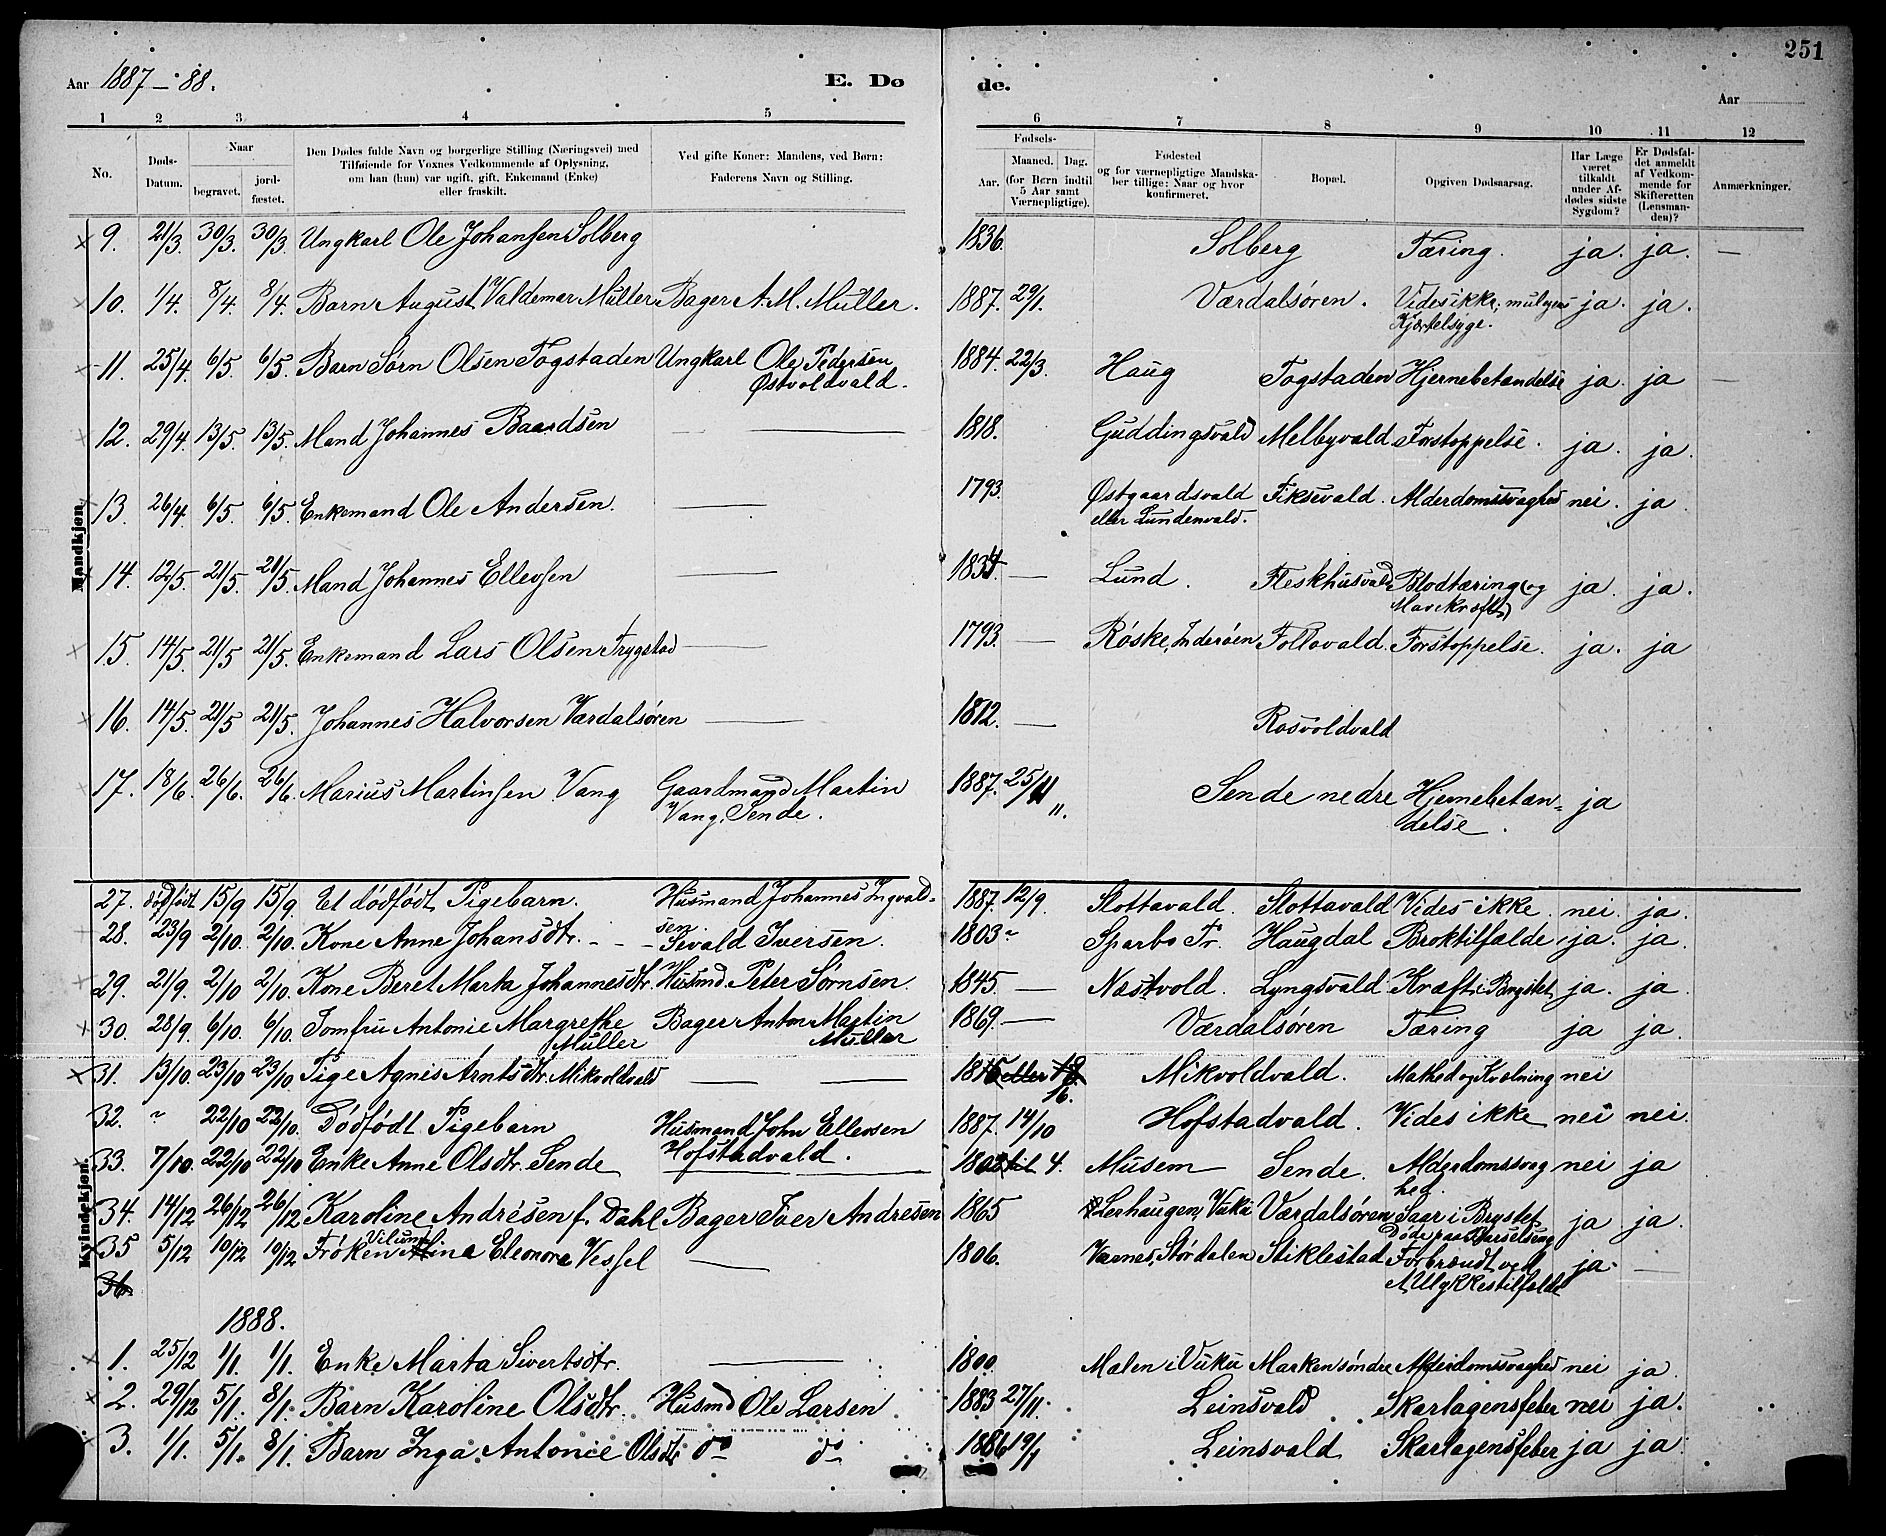 251
Aar 1887-88. E. Dø de. Aar
1 2 3 4 5 6 7 8 9 10 11 12
No. Døds-Datum. Naar begravet. jord-fæstet. Den Dødes fulde Navn og borgerlige Stilling (Næringsvei) med Tilføiende for Voxnes Vedkommende af Oplysning, om han (hun) var ugift, gift, Enkemand (Enke) eller fraskilt. Ved gifte Koner: Mandens, ved Børn: Faderens Navn og Stilling. Fødsels- Aar. Maaned. Dag. (for Børn indtil 5 Aar samt Værnepligtige). Fødested og for værnepligtige Mandskaber tillige: Naar og hvor konfirmeret. Bopæl. Opgiven Dødsaarsag. Har Læge været tilkaldt under Afdødes sidste Sygdom? Er Dødsfaldet anmeldt af Vedkommende for Skifteretten (Lensmanden)? Anmærkninger.
Mandkjøn.
9. 21/3 30/3. 30/3. Ungkarl Ole Johansen Solberg 1836. Solberg Tæring. ja. ja. —
10. 1/4. 8/4. 8/4. Barn August Valdemar Müller Bager A. M. Muller. 1887. 29/1. Værdalsøren. Vides ikke, muligens Kjertelsyge. ja. ja.
11. 25/4. 6/5. 6/5. Barn Sørn Olsen Fogstaden Ungkarl Ole Pedersen Østvoldvald. 1884. 22/3. Haug Fogstaden Hjernebetændelse ja. ja —
12. 29/4. 13/5. 13/5. Mand Johannes Baardsen — 1818. Guddingsvald Melbyvald Forstoppelse. ja. ja.
13. 26/4 6/5. 6/5. Enkemand Ole Andersen. — 1793. Østgaardsvald eller Lundenvald. Fiksevald. Alderdomssvaghed nei. ja.
14. 12/5. 21/5. 21/5. Mand Johannes Ellevsen — 1834. — Lund. Fleskhusvald Blodtæring (og Mavekræft) ja. ja.
15. 14/5. 21/5 21/5. Enkemand Lars Olsen Trygstad — 1793. — Røske, Inderøen Follovald. Forstoppelse. ja. ja
16. 14/5. 21/5 21/5. Johannes Halvorsen Værdalsøren — 1812. — Rosvoldvald
17. 18/6. 26/6. 26/6. Marius Martinsen Vang Gaardmand Martin Vang, Sende. 1887. 25/11 ". Sende nedre Hjernebetæn=delse. ja
Kvindekjøn.
27. dødfødt 15/9 15/9 Et dødfødt Pigebarn. Husmand Johannes Ingvald=sen. 1887. 12/9. Slottavald. Slottavald Vides ikke. nei. ja.
28. 23/9 2/10. 2/10. Kone Anne Johansdtr. - - - Sevald Iversen. 1803 Sparbo Pr. Haugdal Broktilfælde. ja. ja.
29. 21/9. 2/10 2/10. Kone Beret Marta Johannesdtr. Husmd Peter Sørnsen. 1845 — Næstvold. Lyngsvald. Kræft i Brystet ja. ja
30. 28/9. 6/10. 6/10. Jomfru Antonie Margrethe Muller Bager Anton Martin Muller 1869. — Værdalsøren Tæring ja ja.
31. 13/10. 23/10 23/10. Pige Agnes Arntsdtr. Mikvoldvald — — 1815 eller 18 16. Mikvoldvald. Mathed og Kvælning nei
32. 22/10 22/10. Dødfødt Pigebarn Husmand John Ellevsen Hofstadvald. 1887. 14/10 Hofstadvald. Vides ikke nei nei.
33. 7/10. 22/10 22/10 Enke Anne Olsdtr. Sende — 1803 til 4. Musem Sende. Alderdomssvaghed. nei ja
34. 14/12 26/12 26/12 Karoline Andresen f. Dahl Bager Iver Andresen 1865 Lerhaugen, Vuku Værdalsøren Saar i Brystet Døde paa Barselseng ja ja.
35 5/12 19/12 19/12 Frøken Vilumine Eleonora Vessel — 1806. Værnes, Stordalen Stiklestad Forbrændt ved Ulykkestilfælde ja. —
36
1888.
1. 25/12 1/1. 1/1. Enke Marta Sivertsdtr. — 1800. Malen i Vuku Marken søndre Alderdomssvaghed nei ja.
2. 29/12 5/1. 8/1. Barn Karoline Olsdtr. Husmd Ole Larsen 1883 27/11. Leinsvald Skarlagensfeber nei ja.
3. 1/1. 5/1. 8/1. Barn Inga Antonie Olsdtr do do 1886 19/1 Leinsvald Skarlagensfeber ja ja